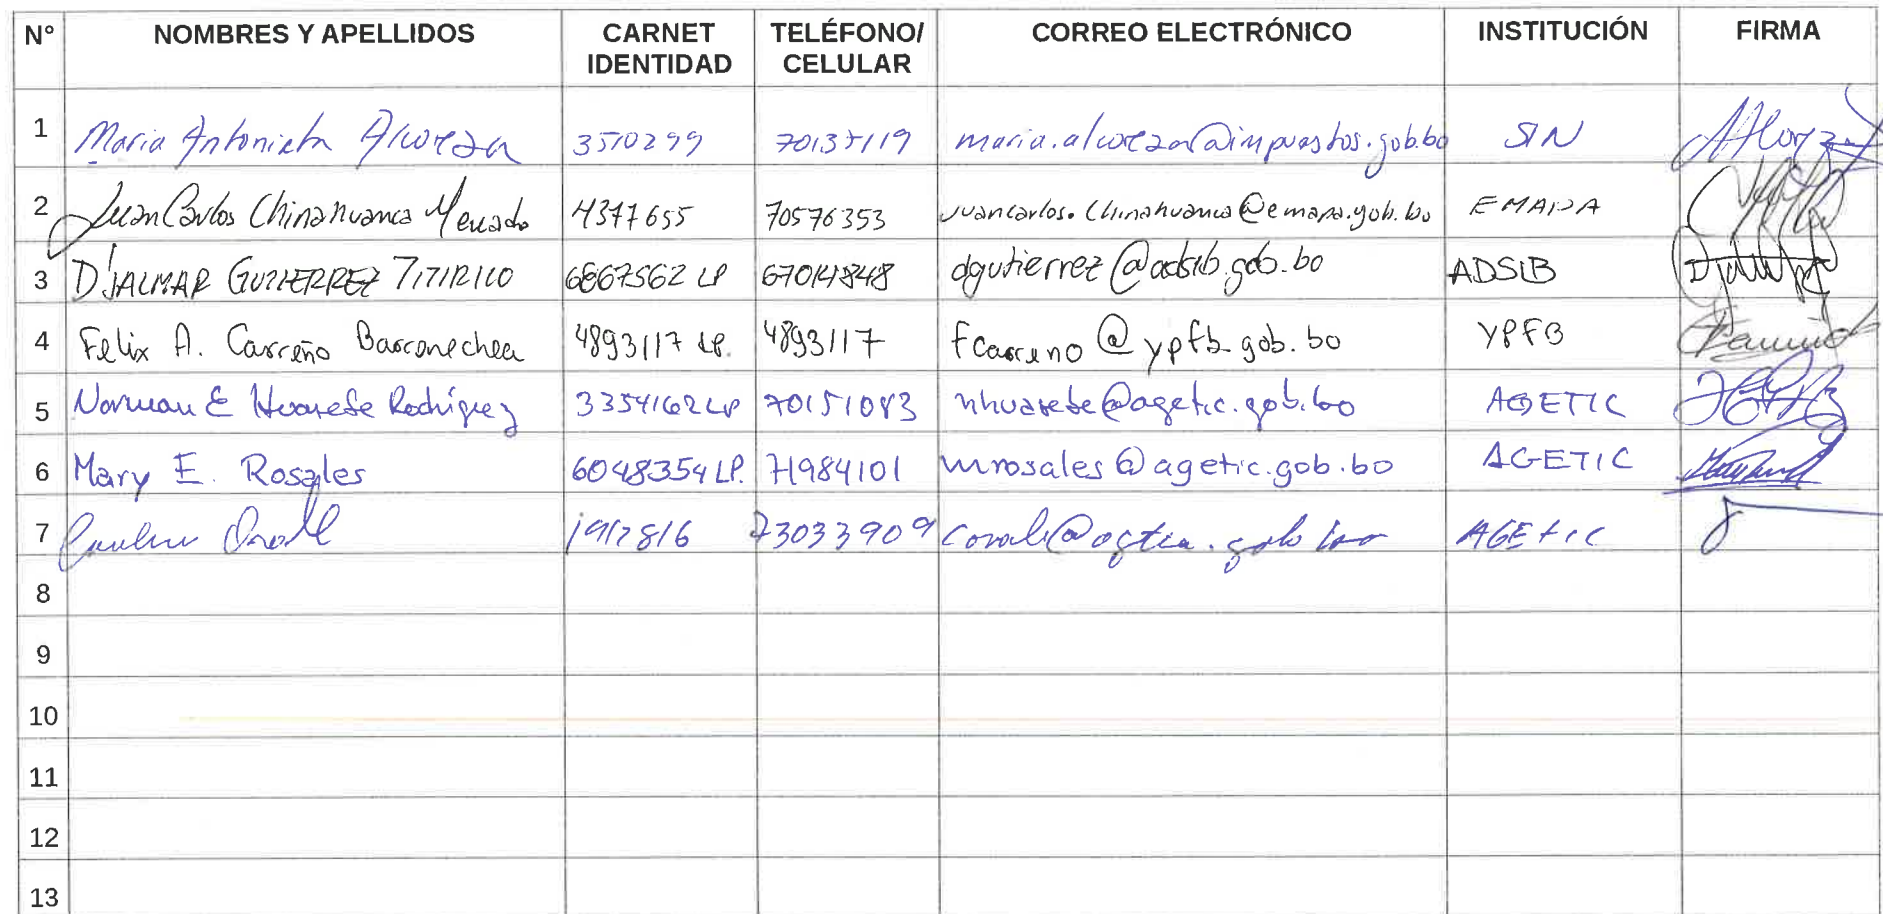 N° NOMBRES Y APELLIDOS CARNET IDENTIDAD TELÉFONO/ CELULAR CORREO ELECTRÓNICO INSTITUCIÓN FIRMA
1 Maria Antonieta Alcoreza 3510299 70135119 maria.alcoreza@impuestos.gob.bo SIN
2 Juan Carlos Chinahuanca Mercado 4377655 70576353 juancarlos.chinahuanca@emapa.gob.bo EMAPA
3 DJALMAR GUTIERREZ TITIRICO 6867562 LP 67014848 dgutierrez@adsib.gob.bo ADSIB
4 Felix A. Carreño Barronechea 4893117 LP. 4893117 fcarreno@ypfb.gob.bo YPFB
5 Norman E Huarefe Rodriguez 3354162 LP 70151083 AGETIC
6 Mary E. Rosales 6048354 LP. 71984101 mrosales@agetic.gob.bo AGETIC
7 73033909 AGETIC
8
9
10
11
12
13